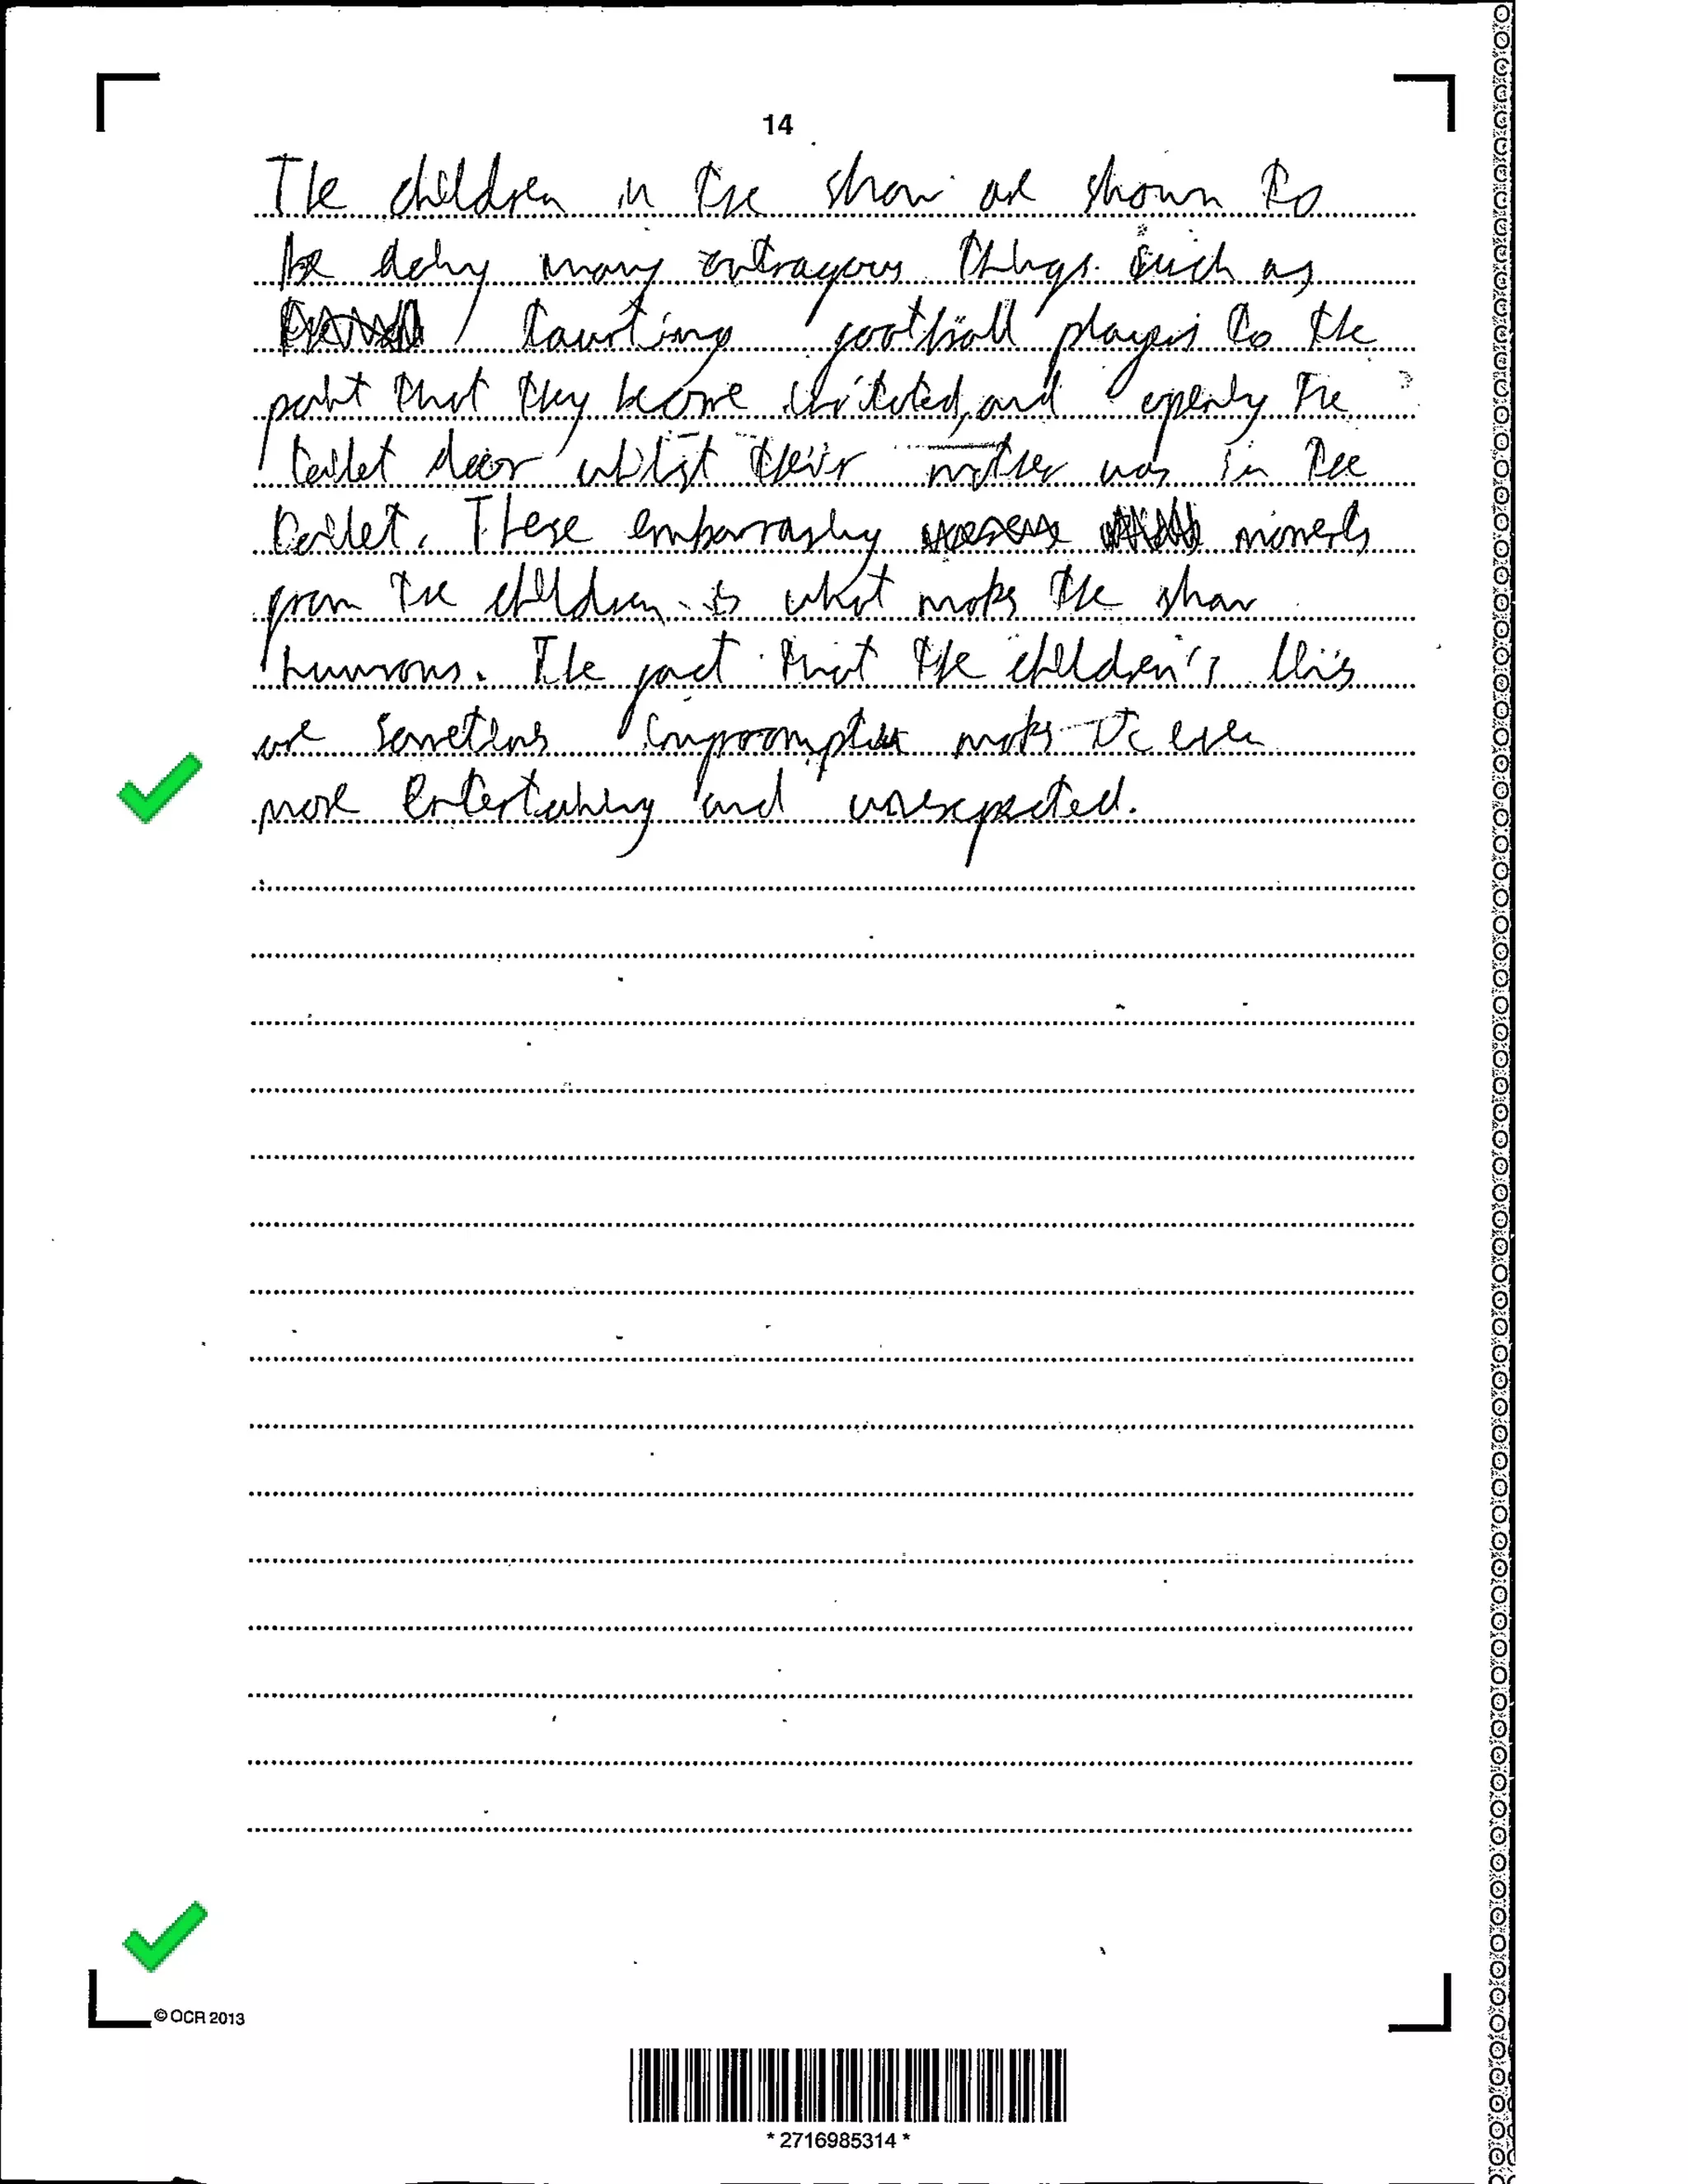 14
The children in the show are shown to
be doing many outrageous things such as
taunting football players to the
point that they become irritated, and opening the
toilet door whilst their mother was in the
toilet. These embarrassing moments
from the children is what makes the show
humorous. The fact that the children's lines
are sometimes makes it even
more entertaining and unexpected.
© OCR 2013
*2716985314*